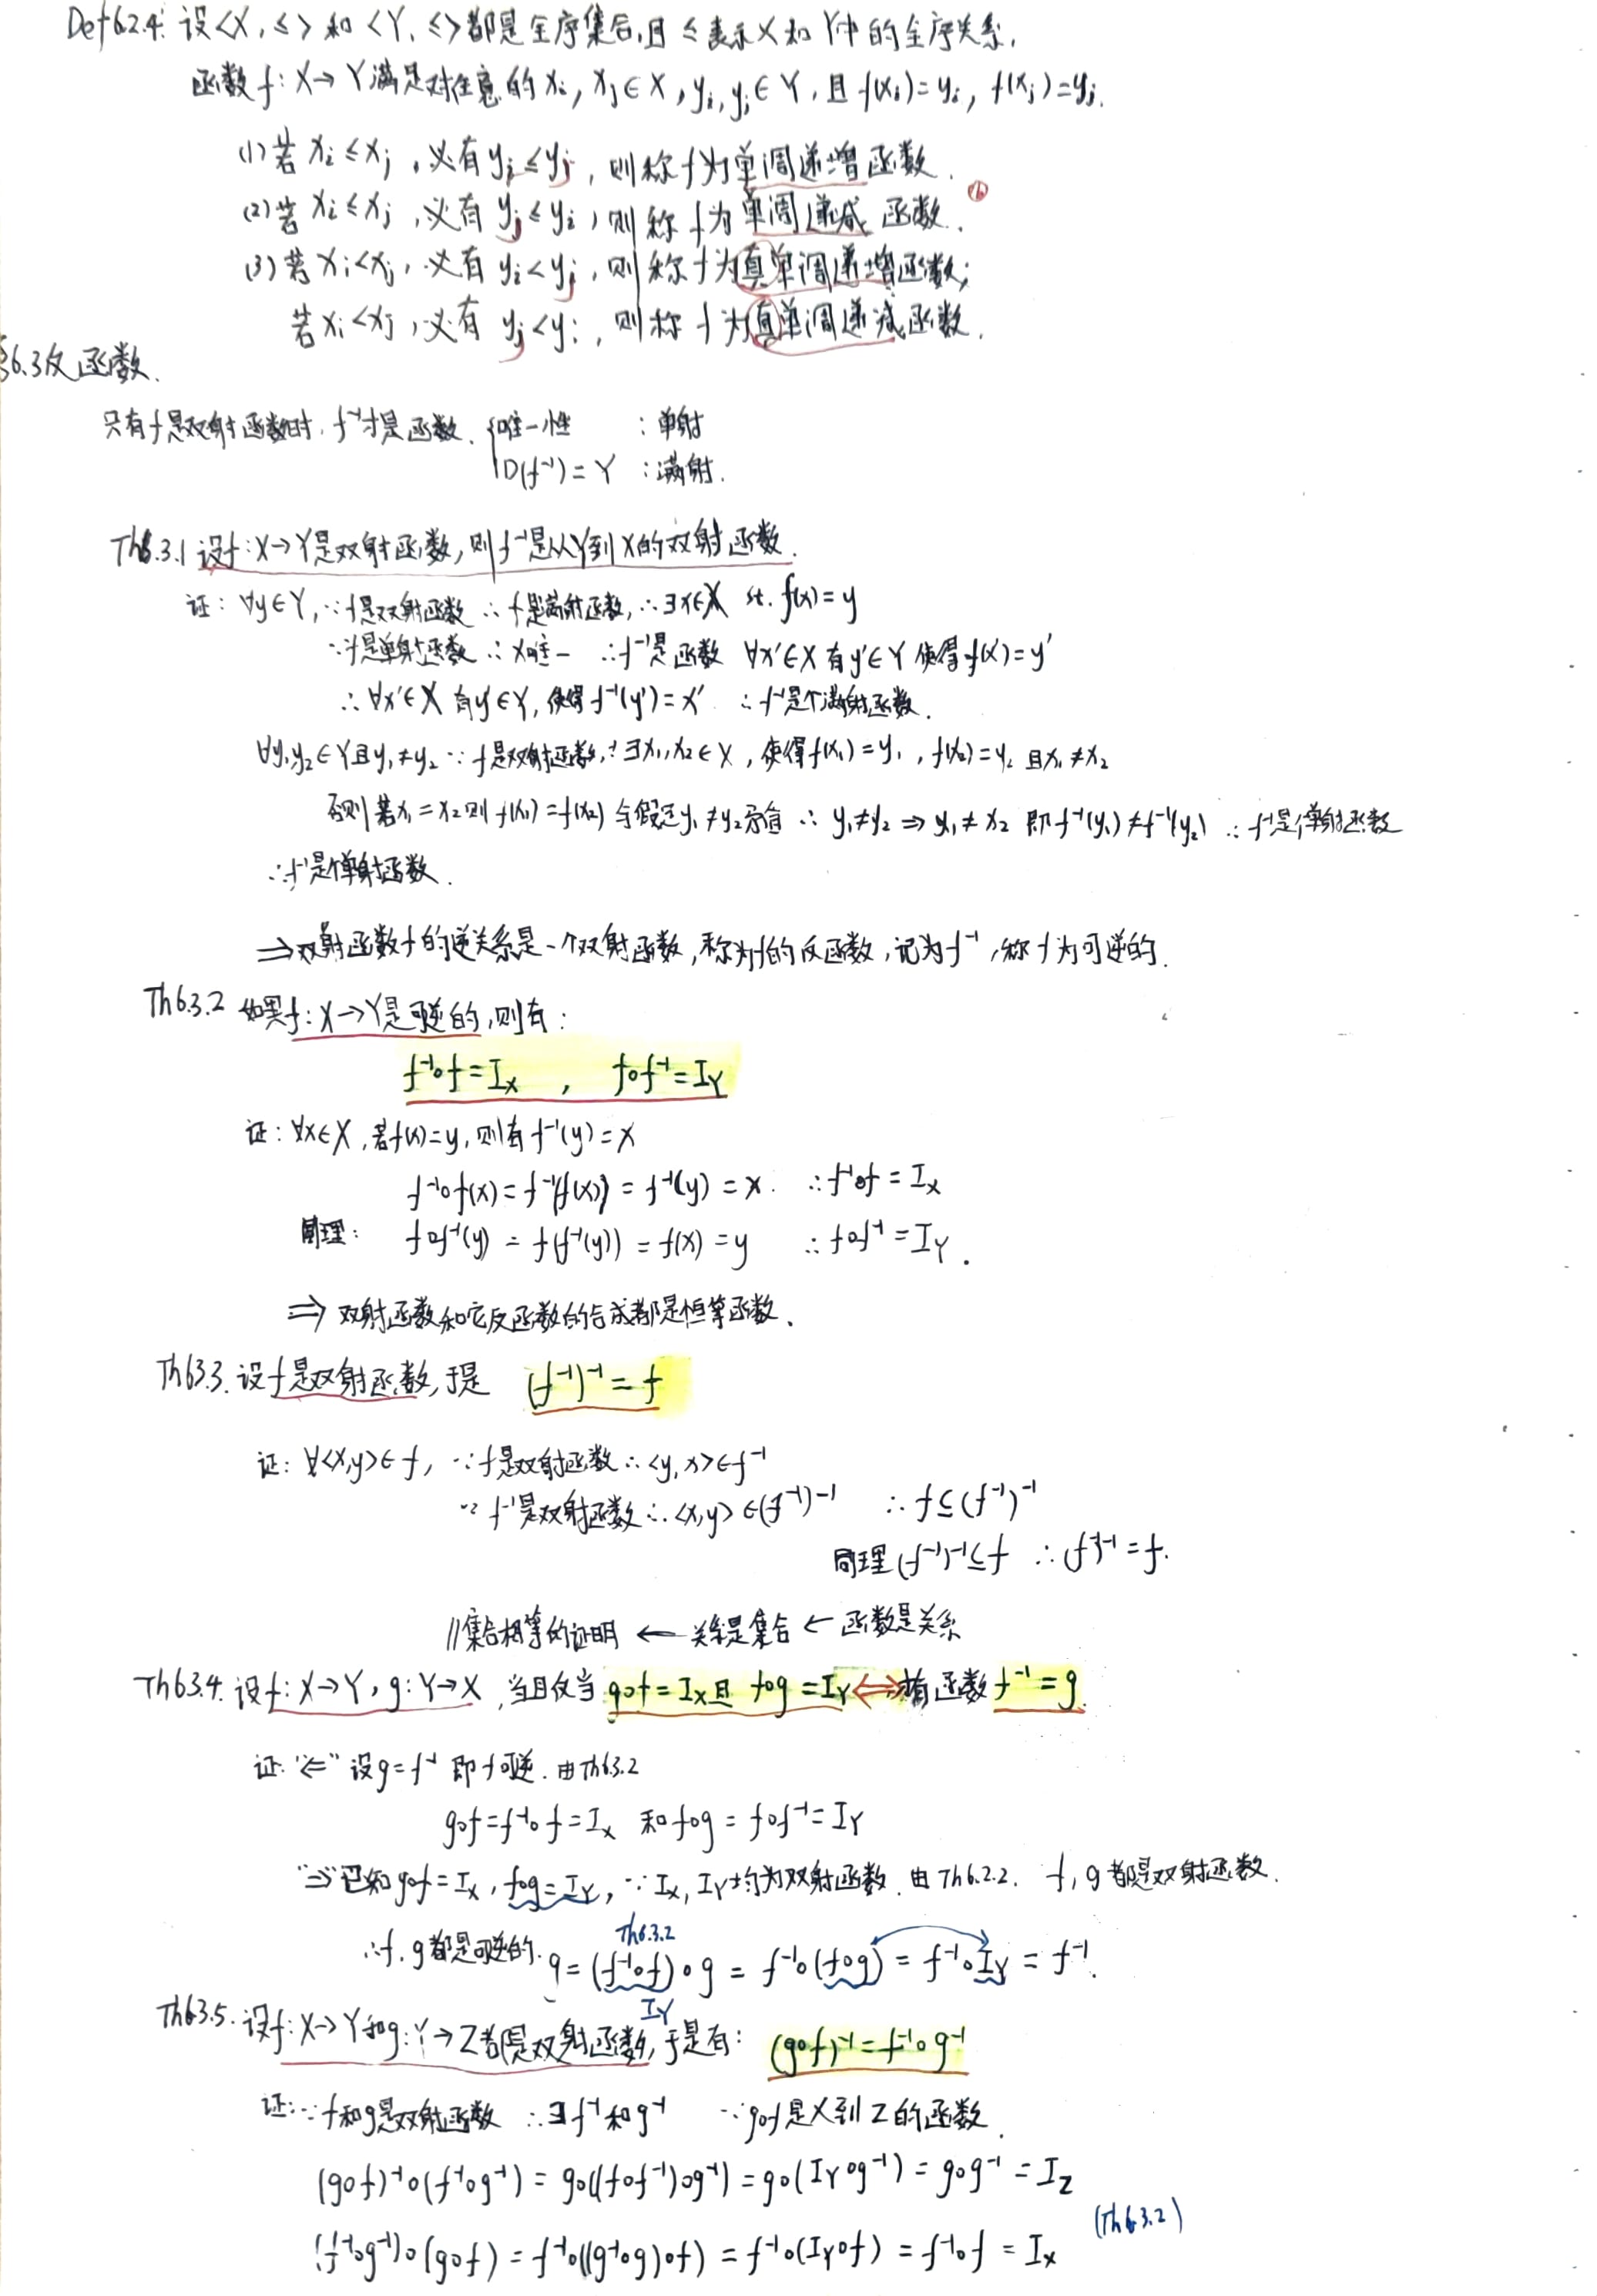 Def6.2.4: 设<X,≤>和<Y,≤>都是全序集合,且≤表示X和Y中的全序关系.
函数f:X→Y满足对任意的xᵢ,xⱼ∈X,yᵢ,yⱼ∈Y,且f(xᵢ)=yᵢ,f(xⱼ)=yⱼ.
(1)若xᵢ≤xⱼ,必有yᵢ≤yⱼ,则称f为单调递增函数.
(2)若xᵢ≤xⱼ,必有yⱼ≤yᵢ,则称f为单调递减函数.
(3)若xᵢ<xⱼ,必有yᵢ<yⱼ,则称f为真单调递增函数;
若xᵢ<xⱼ,必有yⱼ<yᵢ,则称f为真单调递减函数.
§6.3反函数.
只有f是双射函数时,f⁻¹才是函数. {唯一性 :单射
D(f⁻¹)=Y :满射.
Th6.3.1 设f:X→Y是双射函数,则f⁻¹是从Y到X的双射函数.
证:∀y∈Y,∵f是双射函数∴f是满射函数,∴∃x∈X st. f(x)=y
∵f是单射函数∴x唯一 ∴f⁻¹是函数 ∀x'∈X有y'∈Y使得f(x')=y'
∴∀x'∈X有y'∈Y,使得f⁻¹(y')=x' ∴f⁻¹是个满射函数.
∀y₁,y₂∈Y且y₁≠y₂∵f是双射函数,∴∃x₁,x₂∈X,使得f(x₁)=y₁,f(x₂)=y₂且x₁≠x₂
否则若x₁=x₂则f(x₁)=f(x₂)与假定y₁≠y₂矛盾∴y₁≠y₂⇒x₁≠x₂即f⁻¹(y₁)≠f⁻¹(y₂)∴f⁻¹是个单射函数
∴f⁻¹是个单射函数.
⇒双射函数f的逆关系是一个双射函数,称为f的反函数,记为f⁻¹,称f为可逆的.
Th6.3.2 如果f:X→Y是可逆的,则有:
f⁻¹∘f=I_X , f∘f⁻¹=I_Y
证:∀x∈X,若f(x)=y,则有f⁻¹(y)=x
f⁻¹∘f(x)=f⁻¹(f(x))=f⁻¹(y)=x. ∴f⁻¹∘f=I_X
同理: f∘f⁻¹(y)=f(f⁻¹(y))=f(x)=y ∴f∘f⁻¹=I_Y.
⇒双射函数和它反函数的合成都是恒等函数.
Th6.3.3. 设f是双射函数,于是 (f⁻¹)⁻¹=f
证:∀<x,y>∈f,∵f是双射函数∴<y,x>∈f⁻¹
∵f⁻¹是双射函数∴<x,y>∈(f⁻¹)⁻¹ ∴f⊆(f⁻¹)⁻¹
同理(f⁻¹)⁻¹⊆f ∴(f⁻¹)⁻¹=f.
//集合相等的证明←关系是集合←函数是关系
Th6.3.4. 设f:X→Y,g:Y→X,当且仅当g∘f=I_X且f∘g=I_Y⇔有函数f⁻¹=g.
证:"⇐"设g=f⁻¹即f可逆.由Th6.3.2
g∘f=f⁻¹∘f=I_X 和f∘g=f∘f⁻¹=I_Y
"⇒"已知g∘f=I_X,f∘g=I_Y,∵I_X,I_Y均为双射函数.由Th6.2.2. f,g都是双射函数.
Th6.3.2
∴f.g都是可逆的. g=(f⁻¹∘f)∘g=f⁻¹∘(f∘g)=f⁻¹∘I_Y=f⁻¹.
I_Y
Th6.3.5. 设f:X→Y和g:Y→Z都是双射函数,于是有: (g∘f)⁻¹=f⁻¹∘g⁻¹
证:∵f和g是双射函数 ∴∃f⁻¹和g⁻¹ ∵g∘f是X到Z的函数.
(g∘f)⁻¹∘(f⁻¹∘g⁻¹)=g∘((f∘f⁻¹)∘g⁻¹)=g∘(I_Y∘g⁻¹)=g∘g⁻¹=I_Z
(Th6.3.2)
(f⁻¹∘g⁻¹)∘(g∘f)=f⁻¹∘((g⁻¹∘g)∘f)=f⁻¹∘(I_Y∘f)=f⁻¹∘f=I_X